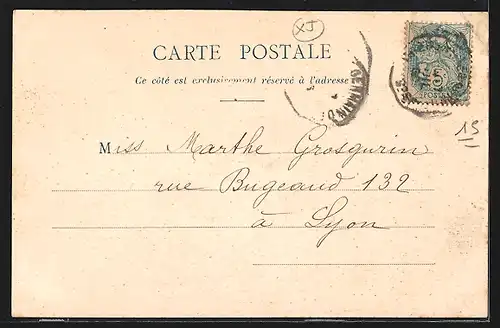 XJ
CARTE POSTALE
Ce côté est exclusivement réservé à l'adresse
Miss Marthe Grosgurin
rue Bugeaud 132
à Lyon
15
5
POSTES